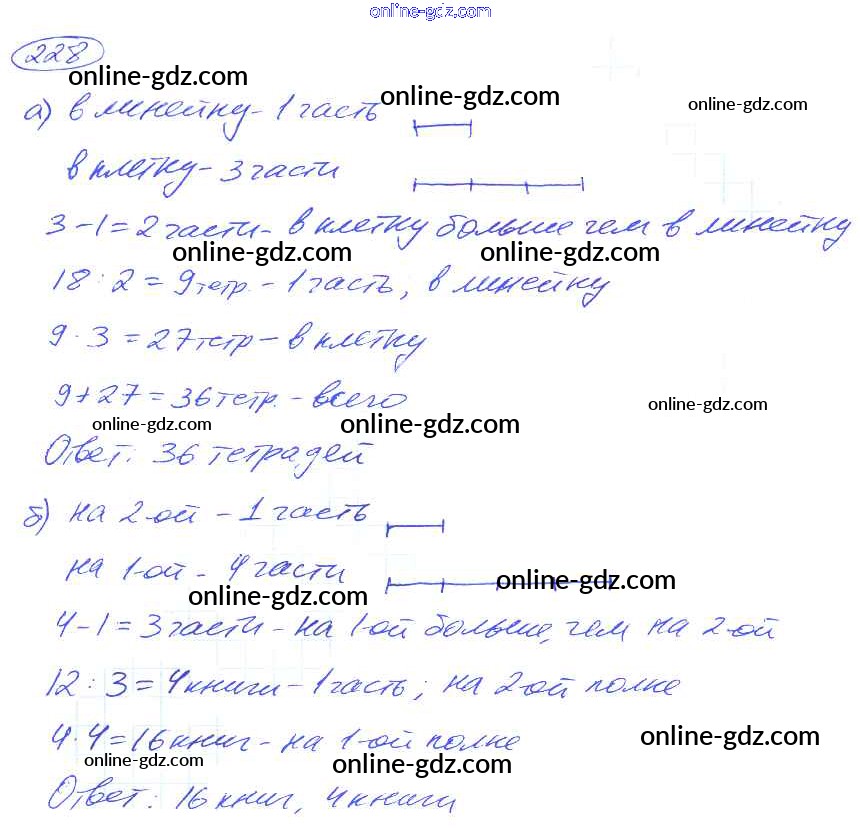 online-gdz.com
228
online-gdz.com
online-gdz.com
online-gdz.com
а) в линейку - 1 часть
в клетку - 3 части
3 - 1 = 2 части - в клетку больше чем в линейку
online-gdz.com
online-gdz.com
18 : 2 = 9 тетр. - 1 часть; в линейку
9 · 3 = 27 тетр - в клетку
9 + 27 = 36 тетр. - всего
online-gdz.com
online-gdz.com
online-gdz.com
Ответ: 36 тетрадей
б) на 2-ой - 1 часть
на 1-ой - 4 части
online-gdz.com
online-gdz.com
4 - 1 = 3 части - на 1-ой больше, чем на 2-ой
12 : 3 = 4 книги - 1 часть; на 2-ой полке
4 · 4 = 16 книг - на 1-ой полке
online-gdz.com
online-gdz.com
online-gdz.com
Ответ: 16 книг, 4 книги